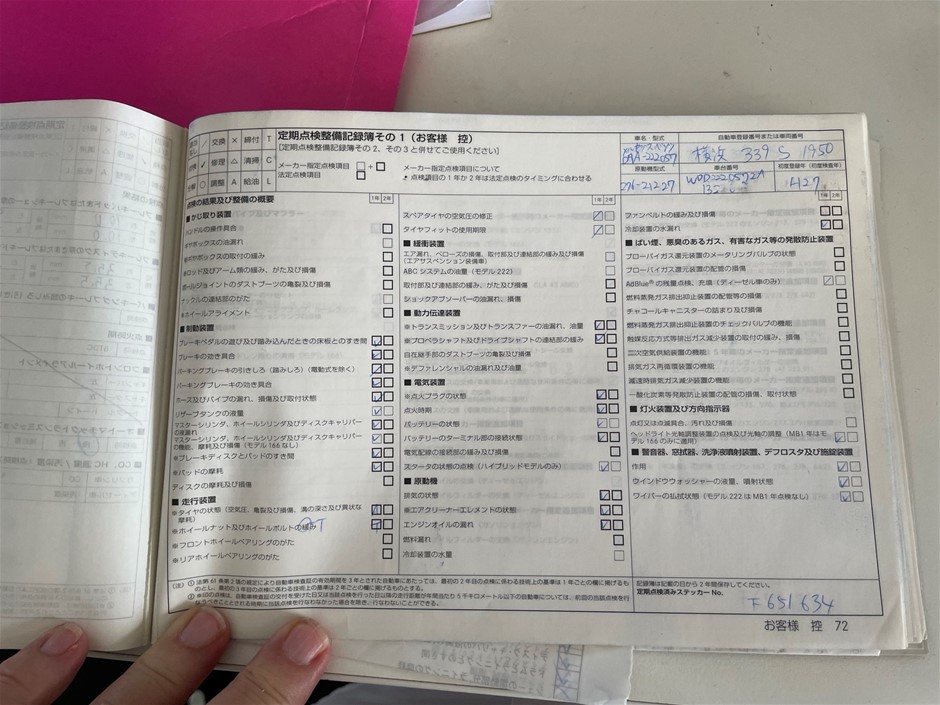 交換 × 締付 T
修理 △ 清掃 C
調整 A 給油 L
定期点検整備記録簿その1（お客様 控）
[定期点検整備記録簿その2、その3と併せてご使用ください]
メーカー指定点検項目 □+□
法定点検項目 □
メーカー指定点検項目について
・点検項目の1年か2年は法定点検のタイミングに合わせる
車名・型式
自動車登録番号または車両番号
横浜 339 S 1950
原動機型式
車台番号
初度登録年(初度検査年)
276-212-27
H27
点検の結果及び整備の概要
1年 2年
■ かじ取り装置
ハンドルの操作具合
ギヤボックスの油漏れ
※ギヤボックスの取付の緩み
※ロッド及びアーム類の緩み、がた及び損傷
ボールジョイントのダストブーツの亀裂及び損傷
ナックルの連結部のがた
※ホイールアライメント
■ 制動装置
ブレーキペダルの遊び及び踏み込んだときの床板とのすき間
ブレーキの効き具合
パーキングブレーキの引きしろ（踏みしろ）（電動式を除く）
パーキングブレーキの効き具合
ホース及びパイプの漏れ、損傷及び取付状態
リザーブタンクの液量
マスターシリンダ、ホイールシリンダ及びディスクキャリパーの液漏れ
マスターシリンダ、ホイールシリンダ及びディスクキャリパーの機能、摩耗及び損傷（モデル166なし）
※ブレーキディスクとパッドのすき間
※パッドの摩耗
ディスクの摩耗及び損傷
■ 走行装置
※タイヤの状態（空気圧、亀裂及び損傷、溝の深さ及び異状な摩耗）
※ホイールナット及びホイールボルトの緩み T
※フロントホイールベアリングのがた
※リアホイールベアリングのがた
1年 2年
スペアタイヤの空気圧の修正
タイヤフィットの使用期限
■ 緩衝装置
エア漏れ、ベローズの損傷、取付部及び連結部の緩み及び損傷
（エアサスペンション装備車）
ABCシステムの油量（モデル222）
取付部及び連結部の緩み、がた及び損傷
ショックアブソーバーの油漏れ、損傷
■ 動力伝達装置
※トランスミッション及びトランスファーの油漏れ、油量
※プロペラシャフト及びドライブシャフトの連結部の緩み
自在継手部のダストブーツの亀裂及び損傷
※デファレンシャルの油漏れ及び油量
■ 電気装置
※点火プラグの状態
点火時期
バッテリーの状態
バッテリーのターミナル部の接続状態
電気配線の接続部の緩み及び損傷
スタータの状態の点検（ハイブリッドモデルのみ）
■ 原動機
排気の状態
※エアクリーナーエレメントの状態
エンジンオイルの漏れ
燃料漏れ
冷却装置の水量
1年 2年
ファンベルトの緩み及び損傷
冷却装置の水漏れ
■ ばい煙、悪臭のあるガス、有害なガス等の発散防止装置
ブローバイガス還元装置のメータリングバルブの状態
ブローバイガス還元装置の配管の損傷
AdBlue®の残量点検、充填（ディーゼル車のみ）
燃料蒸発ガス排出抑止装置の配管等の損傷
チャコールキャニスターの詰まり及び損傷
燃料蒸発ガス排出抑止装置のチェックバルブの機能
触媒反応方式等排出ガス減少装置の取付の緩み、損傷
二次空気供給装置の機能
排気ガス再循環装置の機能
減速時排気ガス減少装置の機能
一酸化炭素等発散防止装置の配管の損傷、取付状態
■ 灯火装置及び方向指示器
点灯又は点滅具合、汚れ及び損傷
ヘッドライト光軸調整装置の点検及び光軸の調整（MB1年はモデル166のみに適用）
■ 警音器、窓拭器、洗浄液噴射装置、デフロスタ及び施錠装置
作用
ウインドウウォッシャーの液量、噴射状態
ワイパーの払拭状態（モデル222はMB1年点検なし）
（注）① 法第61条第2項の規定により自動車検査証の有効期間を3年とされた自動車にあたっては、最初の2年目の点検に係わる技術上の基準は1年ごとの欄に掲げるものとし、最初の3年目の点検に係わる技術上の基準は2年ごとの欄に掲げるものとする。
記録簿は記載の日から2年間保存してください。
定期点検済みステッカー No.
F651634
お客様 控 72